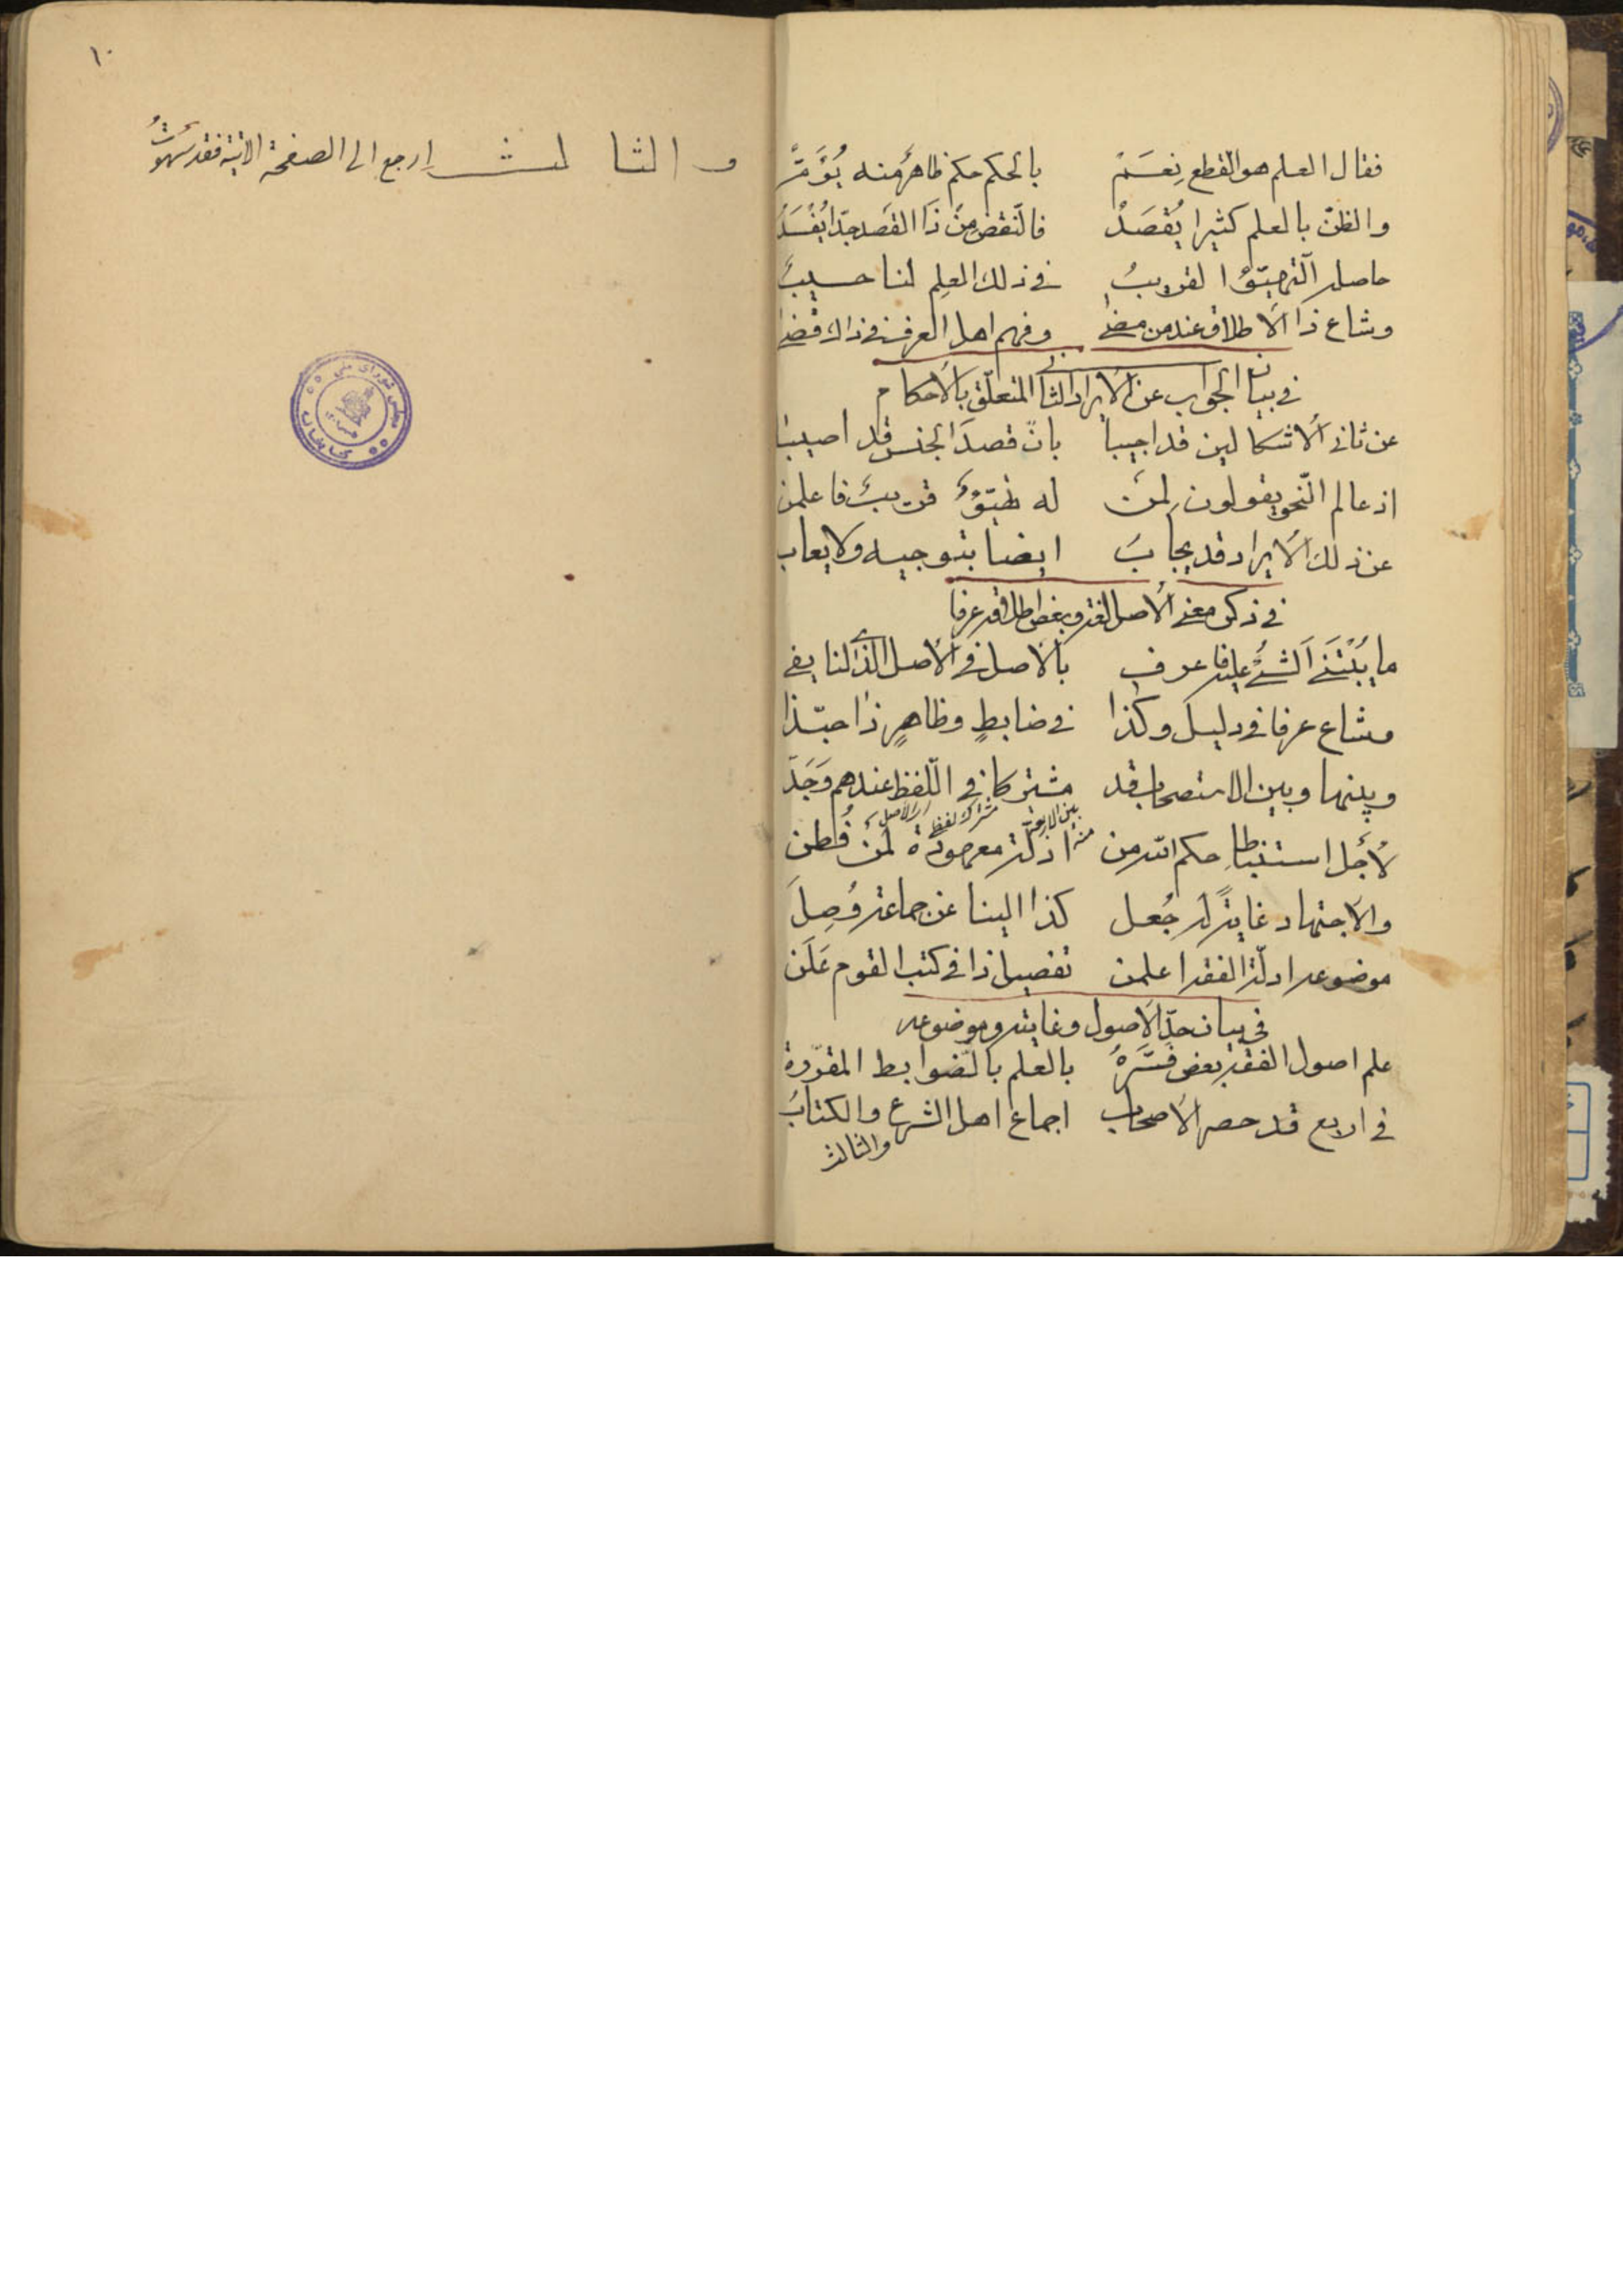 فقال العلم هو القطع نعم بالحكم حكم ظاهر منه يؤم
والظن بالعلم كثيرا يقصد فالنقض من ذا القصد جدا يفسد
حاصله التهيؤ القريب في ذلك العلم لنا حسيب
وشاع ذا الاطلاق عند من مضى وفهم اهل العرف في ذاك قضى
في بيان الجواب عن الايراد الثاني المتعلق بالاحكام
عن ثاني الاشكالين قد اجيبا بان قصد الجنس قد اصيبا
اذ عالم النحو يقولون لمن له تهيؤ قريب فاعلمن
عن ذلك الايراد قد يجاب ايضا بتوجيه ولا يعاب
في ذكر معنى الاصل لغة وبعض اطلاقه عرفا
ما يُبْتَنى الشئ عليه فا عرف بالاصل في الاصل الذي لنا يفي
وشاع عرفا في دليل وكذا في ضابطٍ وظاهرٍ ذا حبّذا
وبينها وبين الاستصحاب قد مشتركا في اللّفظ عندهم وَجَدَ
بين الاربعة مشترك لفظ الاصل
لأجل استنباط حكم الله من ادلة معهودة لمن فُطن
والاجتهاد غايةً له جُعل كذا الينا عن جماعة وُصِلَ
موضوعه ادلّة الفقه اعلمن تفصيل ذا في كتب القوم عَلَن
في بيان حدّ الاصول وغايته وموضوعه
علم اصول الفقه بعض فسّرهُ بالعلم بالضوابط المقرّرة
في اربع قد حصر الاصحاب اجماع اهل الشرع والكتاب
والثالث
١٠
والثالث ارجع الى الصفحة الاتية فقد سهوتُ